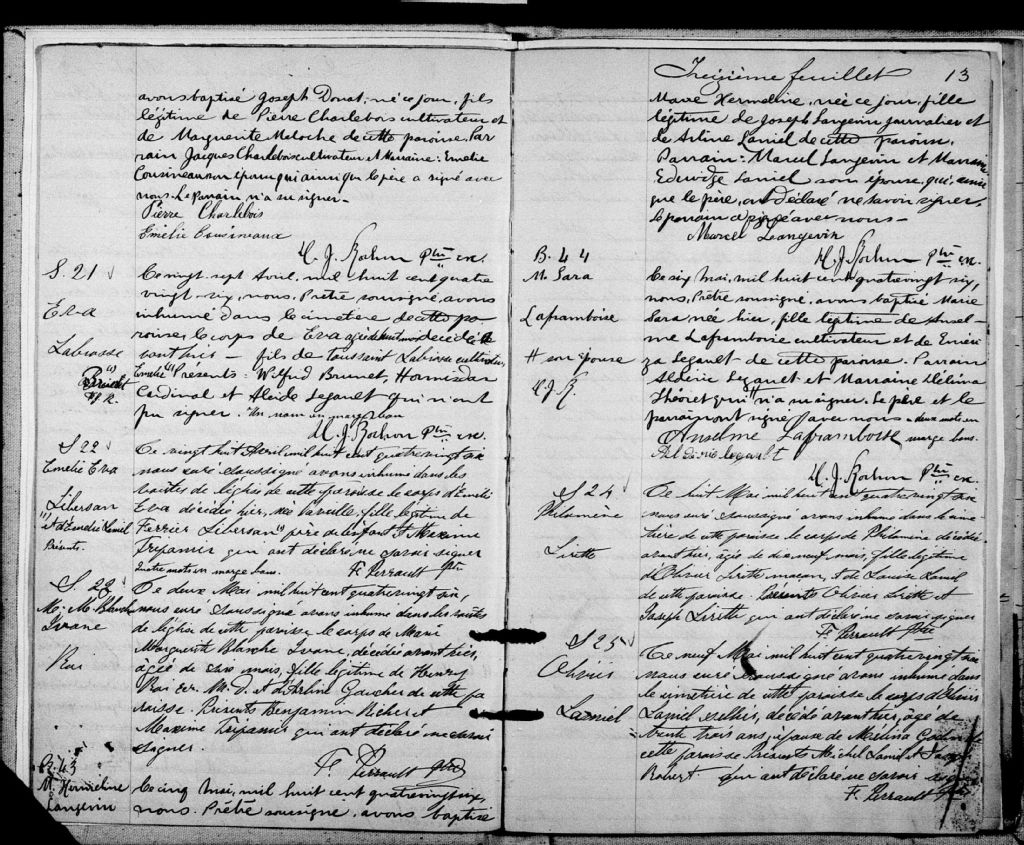 avons baptisé Joseph Donat, né ce jour, fils
légitime de Pierre Charlebois cultivateur et
de Marguerite Meloche de cette paroisse. Par
rain Jacques Charlebois cultivateur et Marraine: Emélie
Cousineau son épouse qui ainsi que le père a signé avec
nous. Le Parrain n'a su signer.
Pierre Charlebois
Emélie Cousineaux
Ptre
S. 21
Eva
Labrosse
Le vingt-sept Avril, mil huit cent quatre
vingt-six, nous, Prêtre soussigné, avons
inhumé dans le cimetière de cette pa
roisse, le corps de Eva agée de huit mois décédée
fils de Toussaint Labrosse cultivateur,
Presents: Wilfrid Brunet, Hormisdas
Cardinal et Alcide Legault qui n'ont
pu signer. Un nom en marge bon
Ptre
S 22
Emélie Eva
Liberson
et d'Emélie Lamiel
Présents.
Ce vingt huit Avril mil huit cent quatrevingt six
nous curé soussigné avons inhumé dans les
voûtes de l'église de cette paroisse le corps d'Emélie
Eva décédée hier, fille légitime de
Ferrier Liberson père de l'enfant et Maxime
qui ont déclaré ne savoir signer
Quatre mots en marge bons. F. Perrault Ptre
S. 23
M. M. Blanche
Ivane
Roi
Ce deux Mai mil huit cent quatrevingt six,
nous curé soussigné avons inhumé dans les voûtes
de l'église de cette paroisse le corps de Marie
Marguerite Blanche Ivane, décédée avant hier,
âgée de mois, fille légitime de Henry
Roi M. D. et d'Arline Gaucher de cette pa
roisse. Présents Benjamin Richer et
Maxime qui ont déclaré ne savoir
signer.
F. Perrault Ptre
B. 43
M. Hermeline
Langevin
Le cinq Mai, mil huit cent quatrevingt six,
nous, Prêtre soussigné, avons baptisé
Treizième feuillet 13
Marie Hermeline, née ce jour, fille
légitime de Joseph Langevin journalier et
de Arline Lamiel de cette paroisse.
Parrain: Marcel Langevin et Marraine
Edwidge Lamiel son épouse, qui, ainsi
que le père, ont déclaré ne savoir signer,
le parrain a signé avec nous
Marcel Langevin
Ptre
B. 44
M. Sara
Laframboise
# son épouse
Le six Mai, mil huit cent quatrevingt six,
nous, Prêtre soussigné, avons baptisé Marie
Sara née hier, fille légitime de Ansel-
me Laframboise cultivateur et de
Legault de cette paroisse. Parrain
Aldéric Legault et Marraine Héléna
Théoret qui n'a su signer. Le père et le
parrain ont signé avec nous. deux mots en
Anselme Laframboise marge bons.
Legault
Ptre
S 24
Philomène
Lirette
Ce huit Mai mil huit cent quatrevingt six
nous curé soussigné avons inhumé dans le cime
tière de cette paroisse le corps de Philomène décédée
avant hier, âgée de dix neuf mois, fille légitime
d'Olivier Lirette maçon, et de Louise Lamiel
de cette paroisse. Présents Olivier Lirette et
Joseph Lirette qui ont déclaré ne savoir signer
F. Perrault Ptre
S 25
Olivier
Lamiel
Ce neuf Mai mil huit cent quatrevingt six
nous curé soussigné avons inhumé dans
le cimetière de cette paroisse le corps d'Olivier
Lamiel décédé avant hier, âgé de
trente trois ans, époux de
cette paroisse Présents Michel Lamiel et
Robert qui ont déclaré ne savoir signer
F. Perrault Ptre